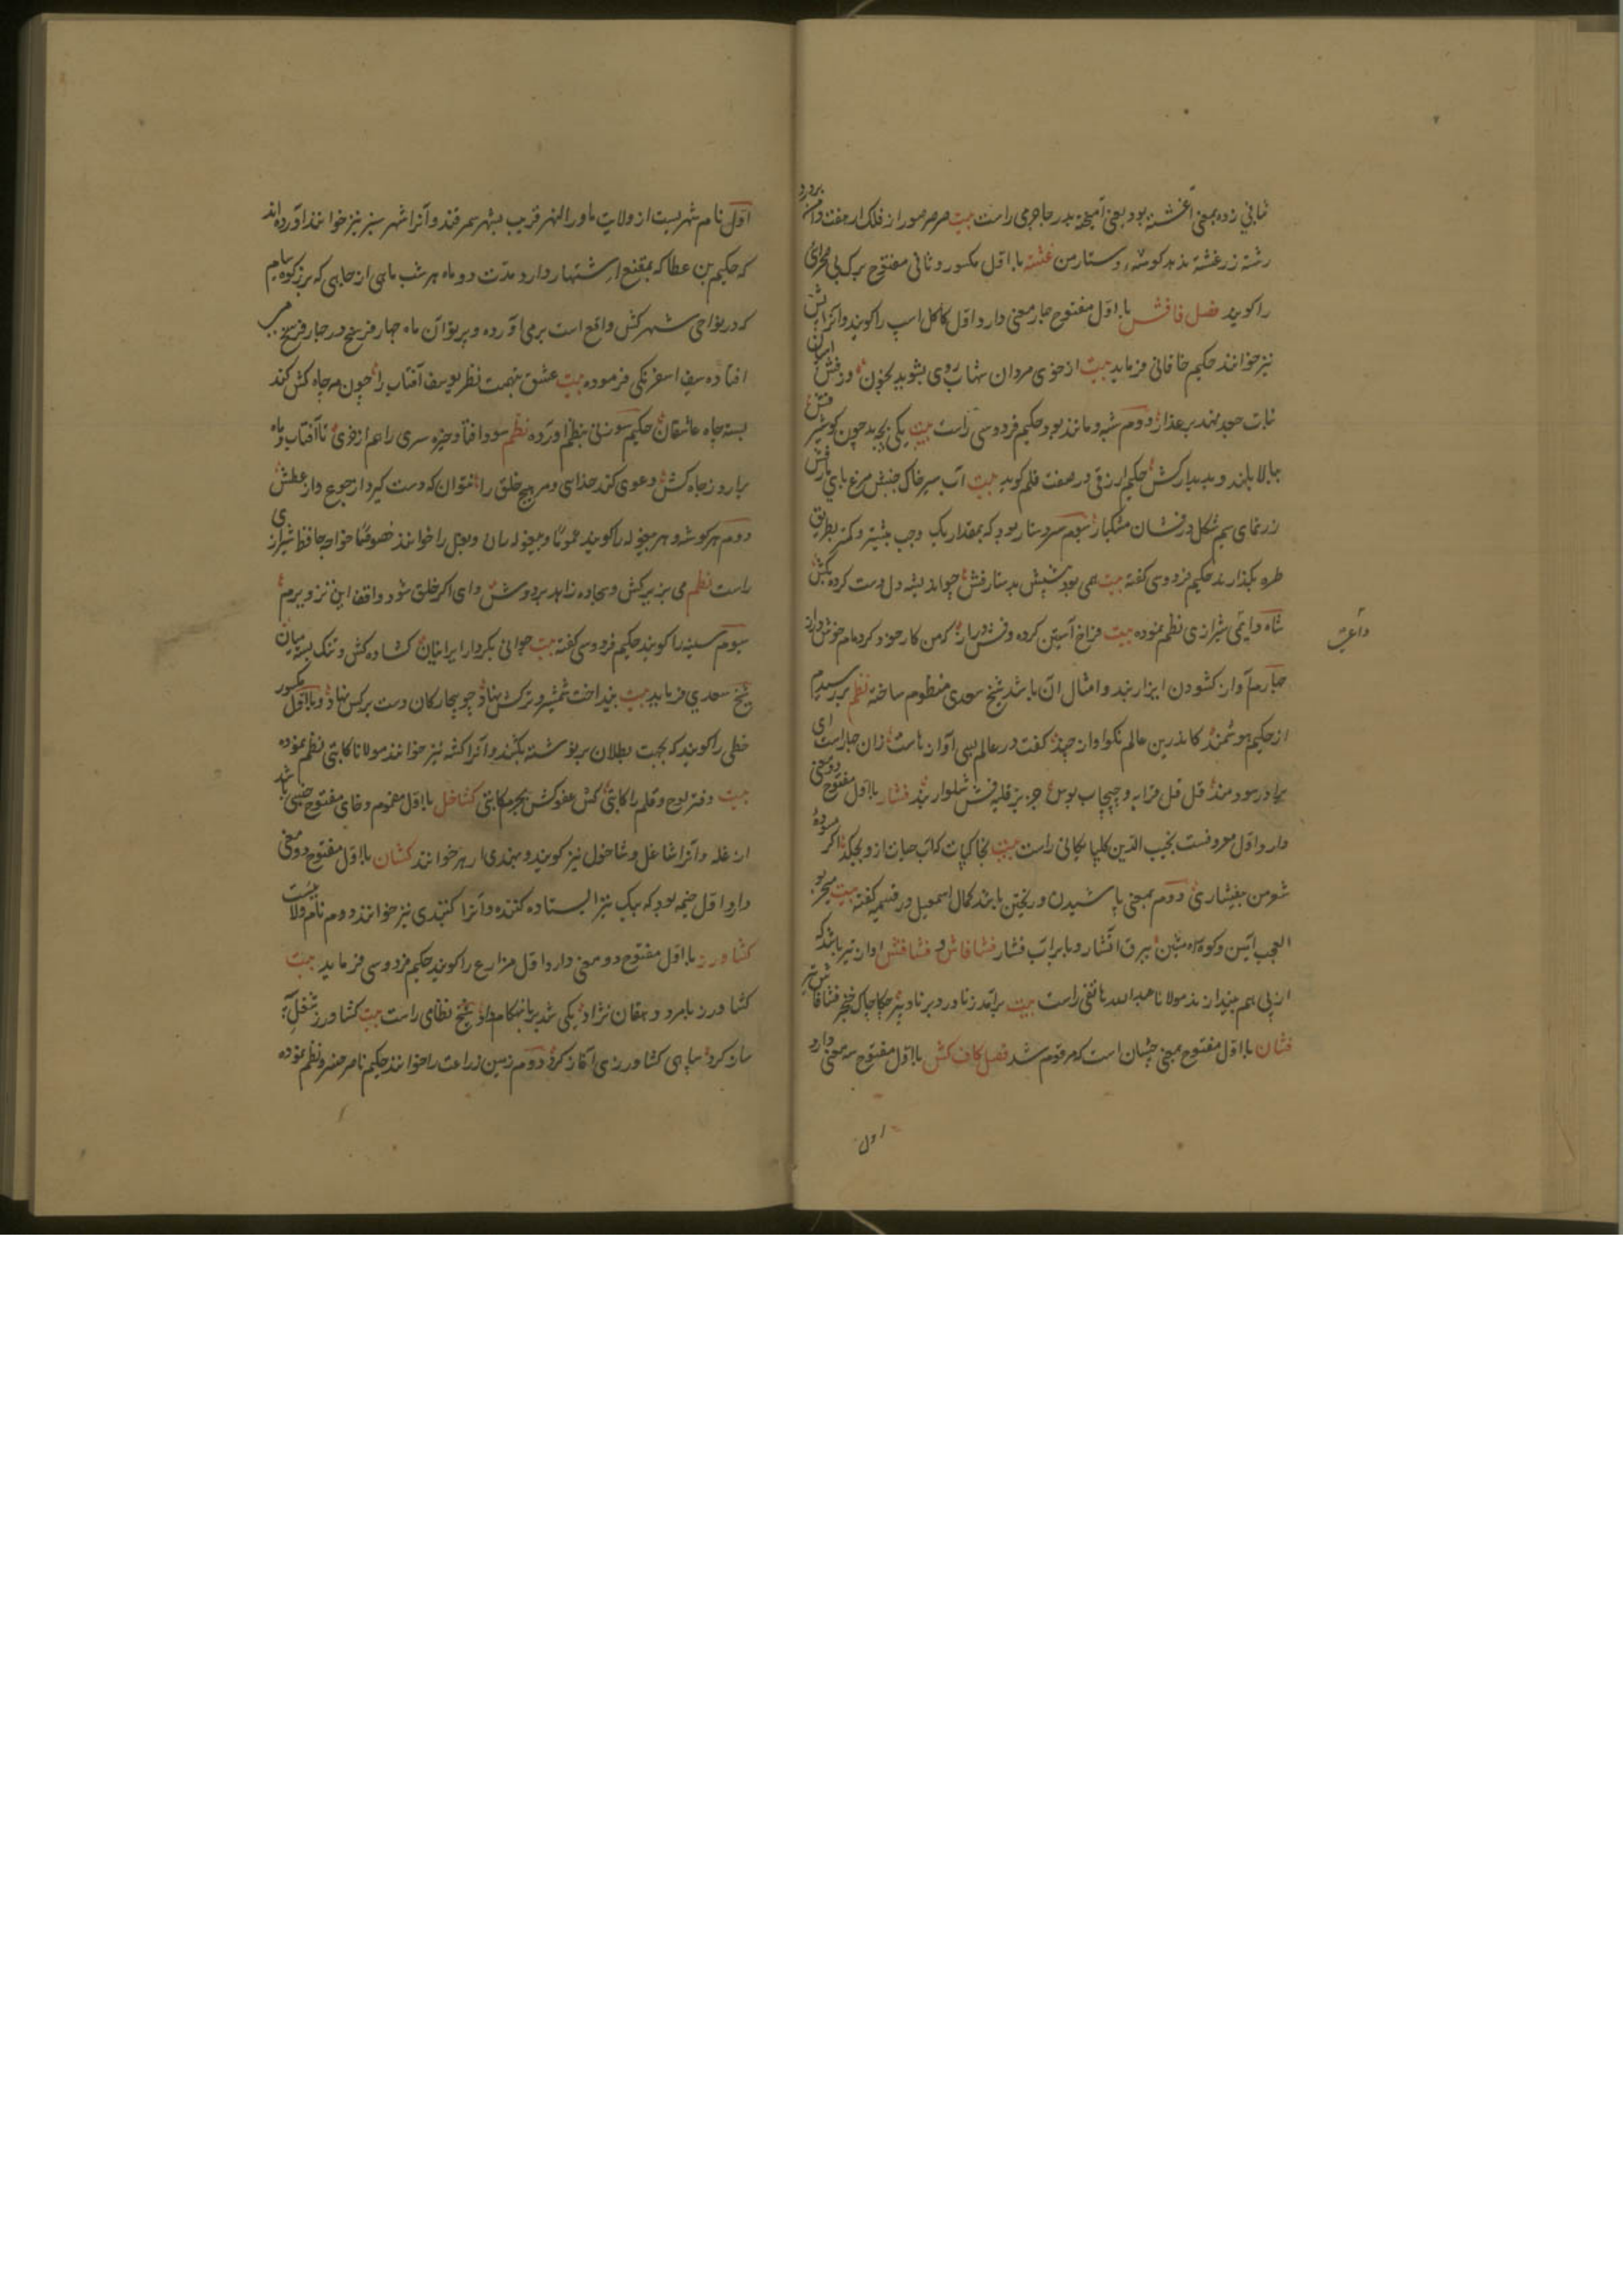 ثانی زده بمعنی آغشته بود یعنی آمیخته بدر جاجرمی راست بیت صرصر صور از فلک ار هفت دامن بردرد
رشته زر غشته بدید کوشه دستار من غشته با اول مکسور و ثانی مفتوح برک نی
را کویند فصل فا فش با اول مفتوح چار معنی دارد اول کاکل اسپ را کویند و انرا بش
نیز خوانند حکیم خاقانی فرماید بیت از خوی مردان شهاب روی بشوید بخون وز فش
نبات جوید مهد بر عذار دوم شبه و مانند بود حکیم فردوسی راست بیت یکی بچه بد چون کو شیر فش
ببالا بلند و بدیدار کش حکیم ازرقی در صفت قلم کوید بیت آب سیر خاک جنبش مرغ پای
زر نمای سیم شکل در فشان مشکبار سوم سر دستار بود که بمقدار یک وجب بیشتر و کمتر بطریق
طره بگذارند حکیم فردوسی گفته بیت همی بود پیشش بدستار فش چو ابد لشه دل دست کرده بکش
شاه داعی شیرازی نظم نموده بیت فراخ آستین کرده و فش دراز که من کار خود کرده‌ام
داعی
چارم آواز کشودن ایزار بند و امثال آن باشد شیخ سعدی منظوم ساخته نظم بررسیدم
از حکیم هوشمند کاندرین عالم نکو اواز چند گفت در عالم بسی آواز هاست زان چهار است ای
برادر سودمند قل قل قرابه و چپچاپ بوس جز بز قلیه فش شلوار بند فشار با اول مفتوح دو معنی
دارد اول معروفست نجیب الدین کلپایکانی راست بیت بخاکپات که آب حیات ازو بچکد اگر
شود من بیفشاری دوم بمعنی پاشیدن و ریختن باشد کمال اسمعیل در قسمیه گفته بیت
العجب آتش و کوه بین برق افشار و با بر آب فشار فشافاش و فشافش اواز تیر باشد که
از پی هم بیندازند مولانا عبدالله هاتفی راست بیت برآمد ز ناورد برنا و پیر چکاچاک خنجر فشافاش تیر
فشان با اول مفتوح بمعنی چشان است که مرقوم شد فصل کاف کش با اول مفتوح سه معنی دارد
اول
اول نام شهریست از ولایت ماوراالنهر قریب بشهر سمرقند و آنرا شهر سبز نیز خوانند آورده‌اند
که حکیم بن عطا که بمقنع اشتهار دارد مدت دو ماه هر شب ماهی از چاهی که بر کوه سیام
که در نواحی شهر کش واقع است برمی آورده و پرتو آن ماه چهار فرسخ در چهار فرسخ می
افتاده سیف اسفرنکی فرموده بیت عشق بتهمت نظر یوسف آفتاب را چون مه چاه کش کند
بسته چاه عاشقان حکیم سوزنی بنظم آورده نظم سودا فتاد خیره سری را هم از خری تا آفتاب و ماه
برآرد ز چاه کش دعوی کند خدایی و مر هیچ خلق را نتوان که دست کیرد از جوع و از عطش
دوم هر کوشه و هر بیغوله را کویند عموما و بیغوله ران و بغل را خوانند خصوصا خواجه حافظ شیرازی
راست نظم می بزیر کش و سجاده زاهد بر دوش وای اگر خلق شود واقف این تزویرم
سوم سینه را کویند حکیم فردوسی گفته بیت جوانی بکردار ایرانیان کشاده کش و تنک بسته میان
شیخ سعدی فرماید بیت بینداخت شمشیر و ترکش نهاد چو بیچارکان دست بر کش نهاد و با اول مکسور
خطی را کویند که بجهت بطلان بر نوشته بکشند و آنرا کشه نیز خوانند مولانا کاتبی نظم نموده
بیت دفتر لوح و قلم را کاتبی کش عفو کش بجرم کاتبی کشاخل با اول مضموم و خای مفتوح جنسی باشد
از غله و آنرا شاخل و شاخول نیز کویند و بهندی ارهر خوانند کشان با اول مفتوح دو معنی
دارد اول خیمه بود که بیک تیر ایستاده کنند و آنرا کنبدی نیز خوانند دوم نام ولایتست
کشاورز با اول مفتوح دو معنی دارد اول مزارع را کویند حکیم فردوسی فرماید بیت
کشاورز یا مرد دهقان نژاد یکی شد بر ما بهنکام داد شیخ نظامی راست بیت کشاورز شغل
ساز کرد سپاهی کشاورزی آغاز کرد دوم زمین زراعت را خوانند حکیم ناصر خسرو نظم نموده